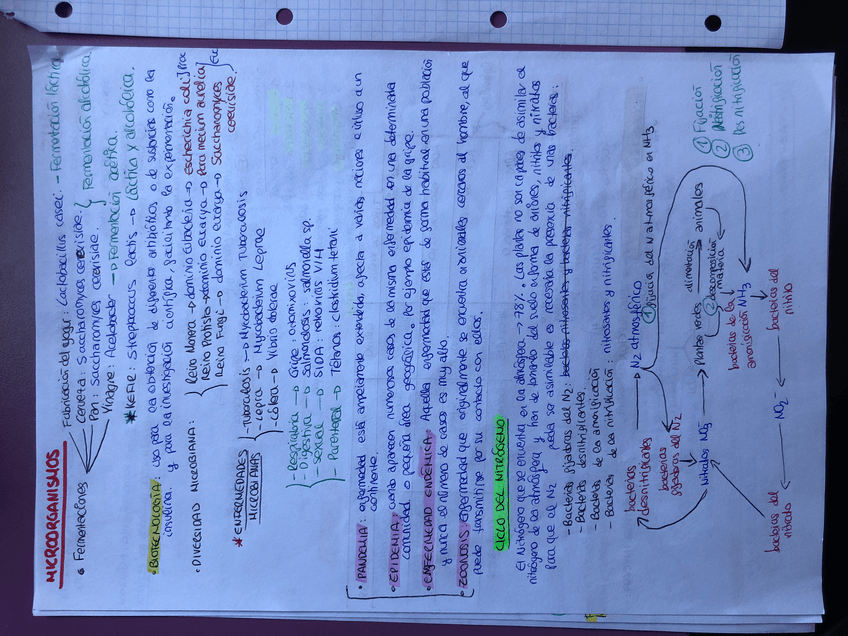 MICROORGANISMOS
• Fermentaciones
Fabricación del yogur: Lactobacillus casei. → Fermentación láctica.
Cerveza: Saccharomyces cerevisiae.
Pan: saccharomyces cerevisiae. } Fermentación alcohólica.
Vinagre: Acetobacter → Fermentación acética
*KEFIR: Streptococcus lactis → Láctica y alcohólica.
• BIOTECNOLOGÍA: uso para la obtención de diferentes antibióticos o de sustancias como la
insulina y para la investigación científica, facilitando la experimentación.
• DIVERSIDAD MICROBIANA:
Reino Monera → dominio Eubacteria → Escherichia coli
Reino Protista → dominio eukarya → Paramecium aurelia
Reino Fungi → dominio eukarya → Saccharomyces
cerevisiae.
* ENFERMEDADES
MICROBIANAS
- Tuberculosis → Mycobacterium Tuberculosis
- Lepra → Mycobacterium Leprae
- Cólera → Vibrio cholerae
- Respiratoria → Gripe:
- Digestiva → Salmonelosis: salmonella sp.
- Sexual → SIDA: retrovirus VIH
- Parenteral → Tétanos: clostridium tetani
• PANDEMIA: enfermedad está ampliamente extendida, afecta a varias naciones e incluso a un
continente.
• EPIDEMIA: cuando aparecen numerosos casos de una misma enfermedad en una determinada
comunidad o pequeña área geográfica. Por ejemplo epidemia de la gripe.
• ENFERMEDAD ENDÉMICA: Aquella enfermedad que está de forma habitual en una población
y nunca el número de casos es muy alto.
• ZOONOSIS: enfermedad que originalmente se encuentra en animales cercanos al hombre, al que
puede transmitirse por su contacto con ellos.
CICLO DEL NITRÓGENO
El Nitrógeno que se encuentra en la atmósfera → 78%. Las plantas no son capaces de asimilar el
nitrógeno de la atmósfera y han de tomarlo del suelo en forma de aniones, nitritos y nitratos
Para que el N2 pueda se asimilable es necesaria la presencia de unas bacterias:
- Bacterias fijadoras del N2: bacterias nitrosantes y bacterias nitrificantes.
- Bacterias desnitrificantes.
- Bacterias de la amonificación
- Bacterias de la nitrificación: nitrosantes y nitrificantes.
bacterias
desnitrificantes
N2 atmosférico
① Fijación del N atmosférico en NH3
① Fijación
② Nitrificación
③ Desnitrificación
bacterias
fijadoras del N2
Nitratos NO3⁻
Plantas verdes
alimentación
animales
② descomposición
materia
bacterias de la
amonificación
NH3
bacterias del
nitrito
NO2⁻
bacterias del
nitrato